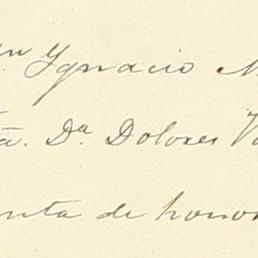 Ygnacio M
Da Dolores V
de honor